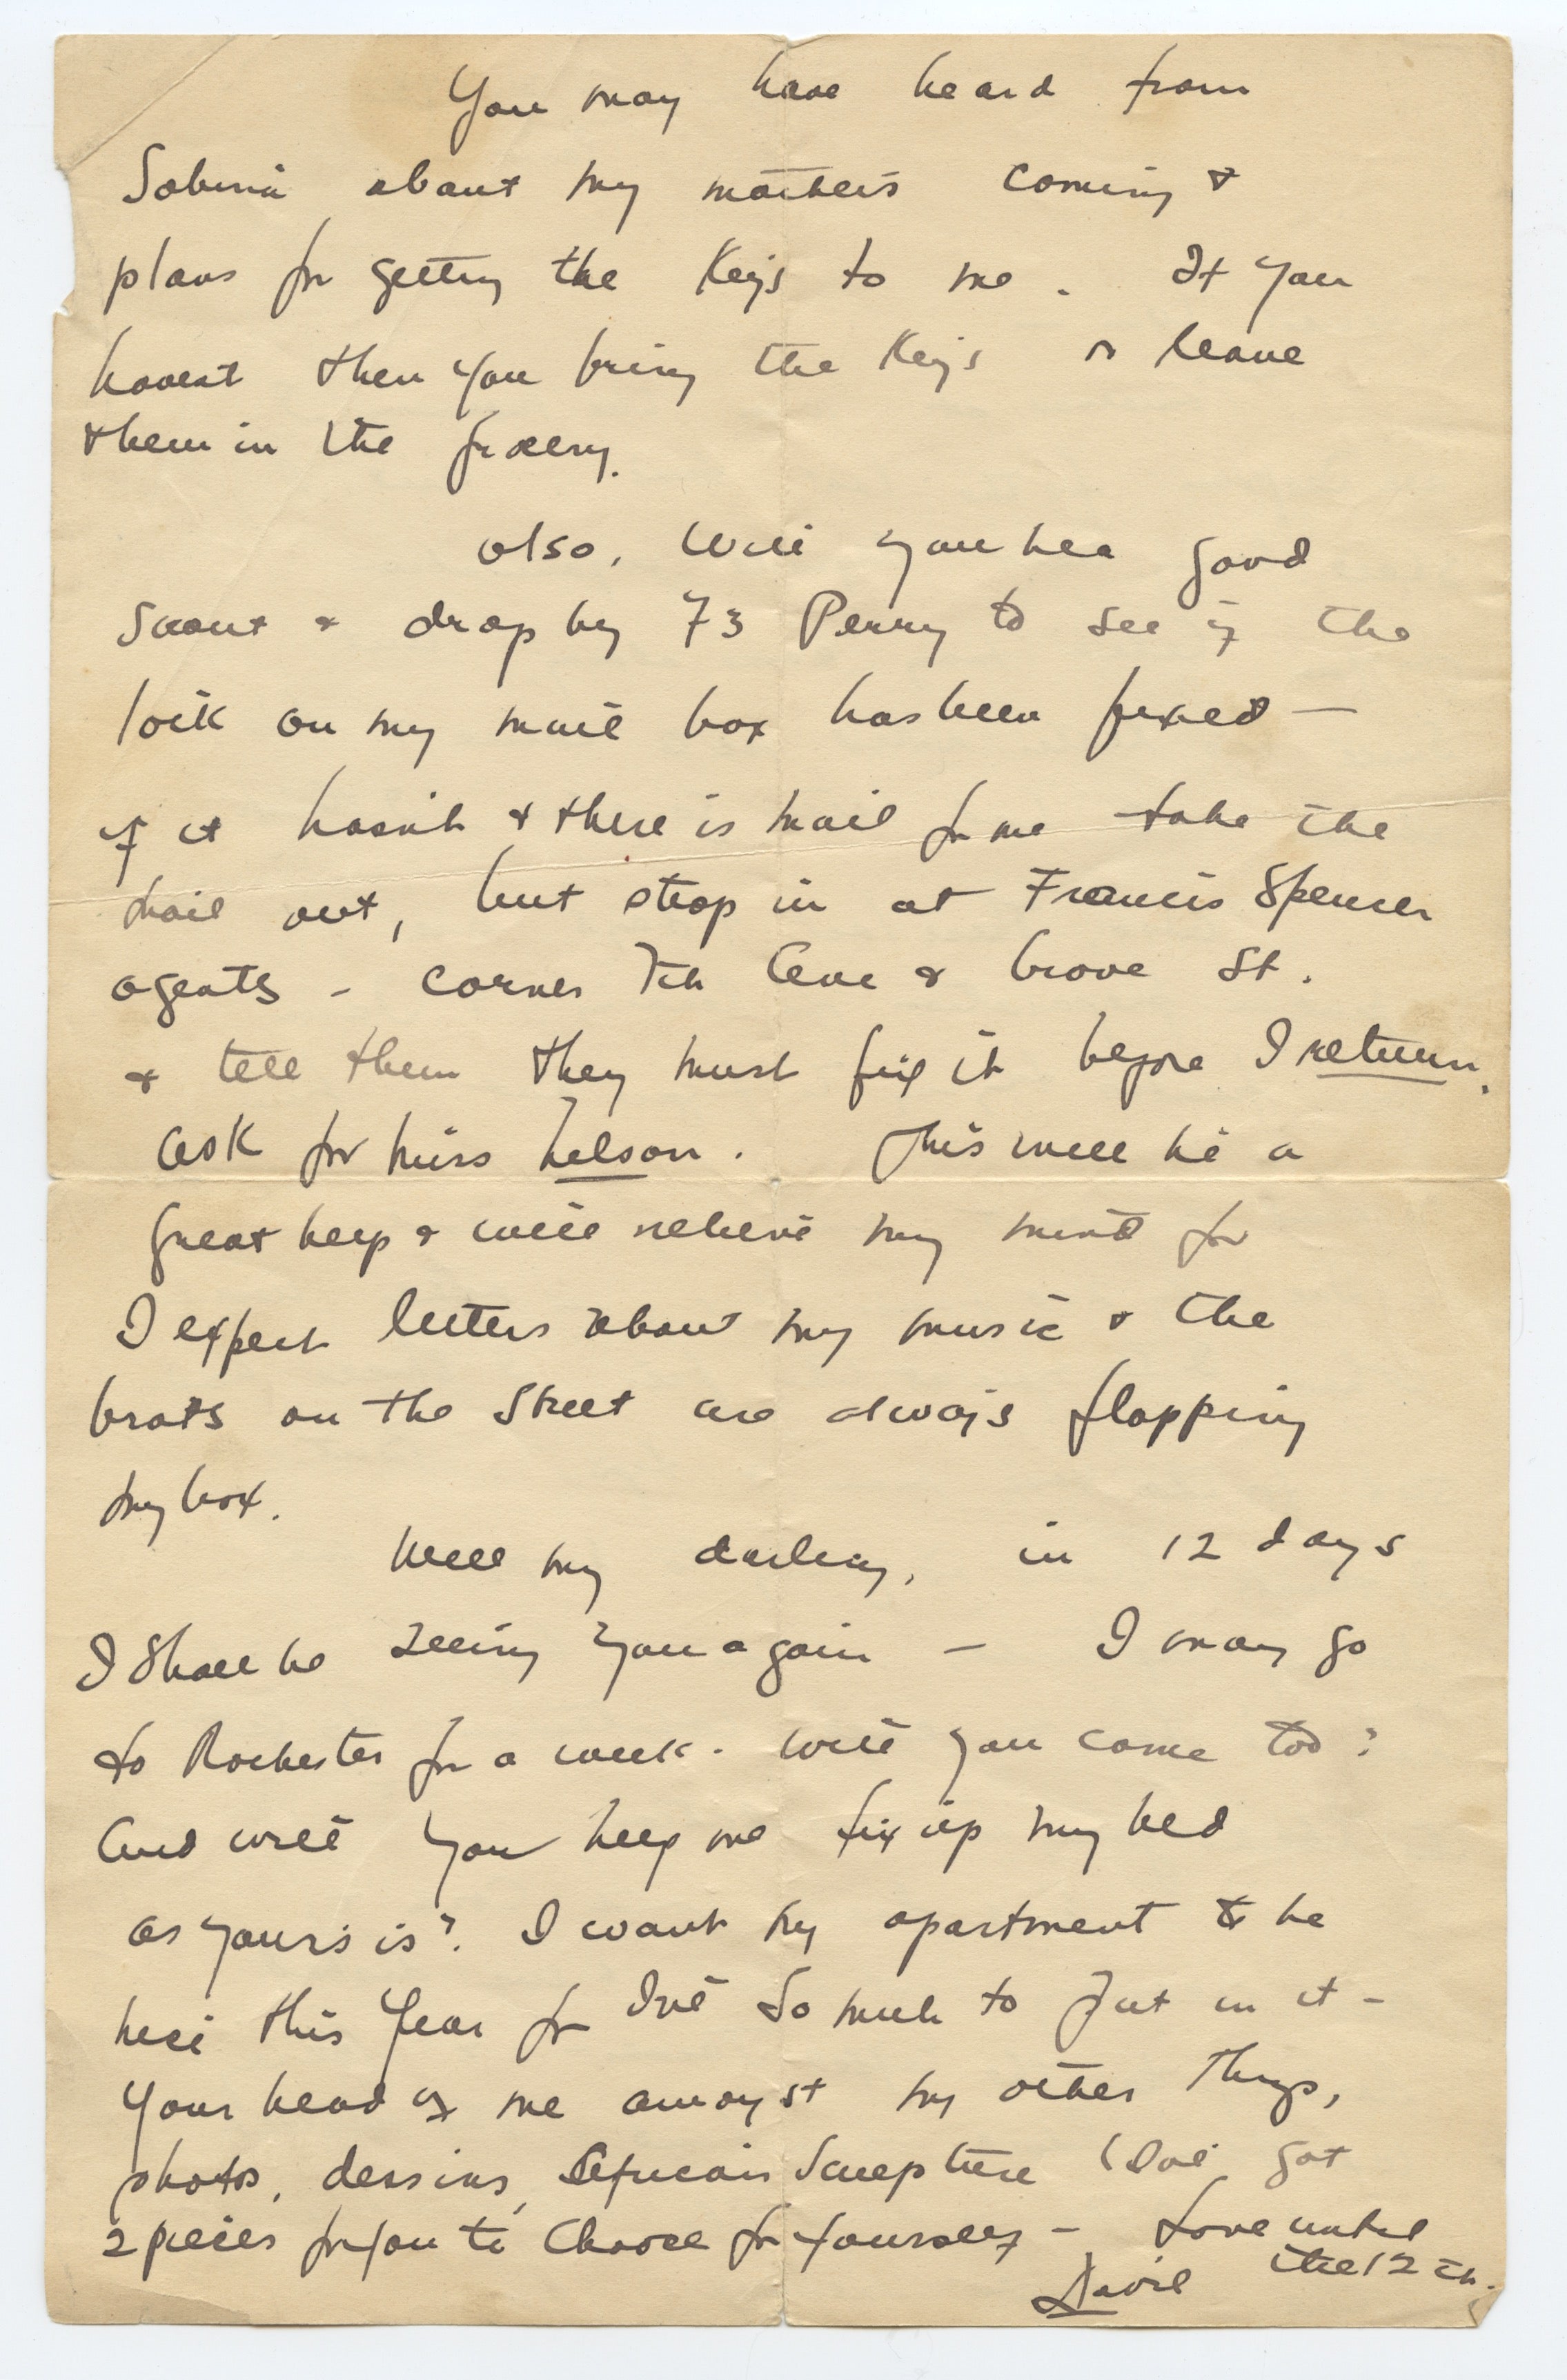 You may have heard from
Sabina about my mother's coming &
plans for getting the Keys to me. If you
havent then you bring the Keys or leave
them in the grocery.
Also, will you be a good
scout & drop by 73 Perry to see if the
lock on my mail box has been fixed —
if it hasn't & there is mail for me take the
mail out, but stop in at Francis Spencer
agents - corner 7th Ave & Grove St.
& tell them they must fix it before I return.
Ask for Miss Nelson. This will be a
great help & will relieve my mind for
I expect letters about my music & the
brats on the street are always flapping
my box.
Well my darling, in 12 days
I shall be seeing you again — I may go
to Rochester for a week. Will you come too?
And will you help me fix up my bed
as yours is? I want my apartment to be
nice this year for I've so much to put in it -
Your head of me amongst my other things,
photos, dessins, African Sculpture (I've got
2 pieces for you to choose for yourself - Love until
the 12th.
David